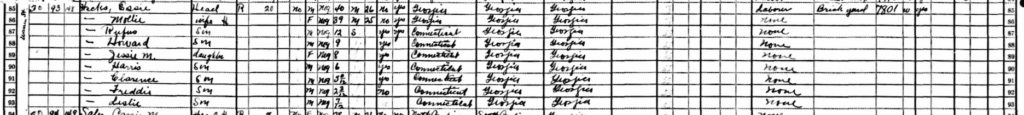 85 20 43 48 Hicks, Essie Head R 20 no M Neg 40 M 26 no yes Georgia Georgia Georgia yes Laborer Brick yard 7801 w yes 85
86 — Mollie wife H F Neg 39 M 25 no yes Georgia Georgia Georgia yes none 86
87 — Rufus Son M Neg 12 S yes yes Connecticut Georgia Georgia yes none 87
88 — Howard Son M Neg 9 yes Connecticut Georgia Georgia none 88
89 — Jessie M. daughter F Neg 8 yes Connecticut Georgia Georgia none 89
90 — Harris Son M Neg 6 yes Connecticut Georgia Georgia none 90
91 — Clarence Son M Neg yes Connecticut Georgia Georgia none 91
92 — Freddie Son M Neg no Connecticut Georgia Georgia none 92
93 — Leslie Son M Neg Connecticut Georgia Georgia none 93